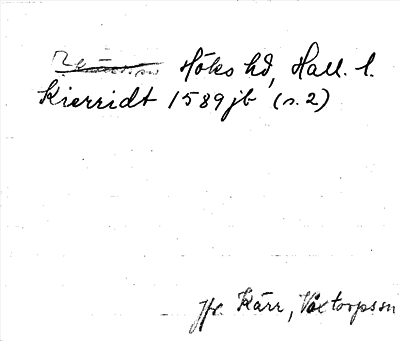 Höks hd, Hall. l.
Kierridt 1589 jb (s. 2)
Jfr Kärr, Växtorps sn